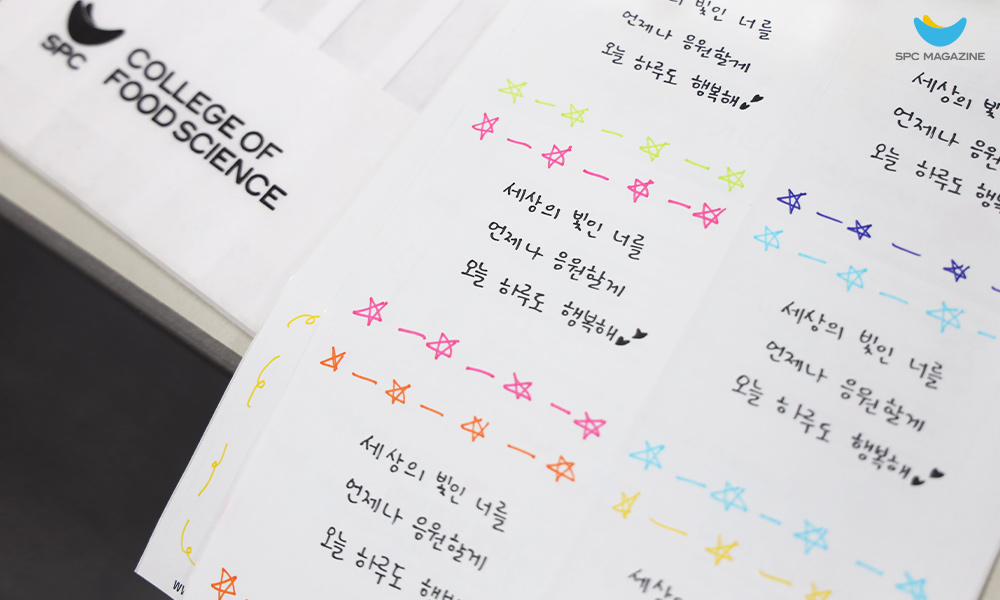 SPC
COLLEGE OF
FOOD SCIENCE
SPC MAGAZINE
빛인 너를
언제나 응원할게
오늘 하루도 행복해
세상의
언제나
오늘 하루도
세상의 빛인 너를
언제나 응원할게
오늘 하루도 행복해
세상의 빛인 너를
언제나 응원할게
오늘 하루도 행복해
세상의 빛인 너를
언제나 응원할게
오늘 하루도
세상의